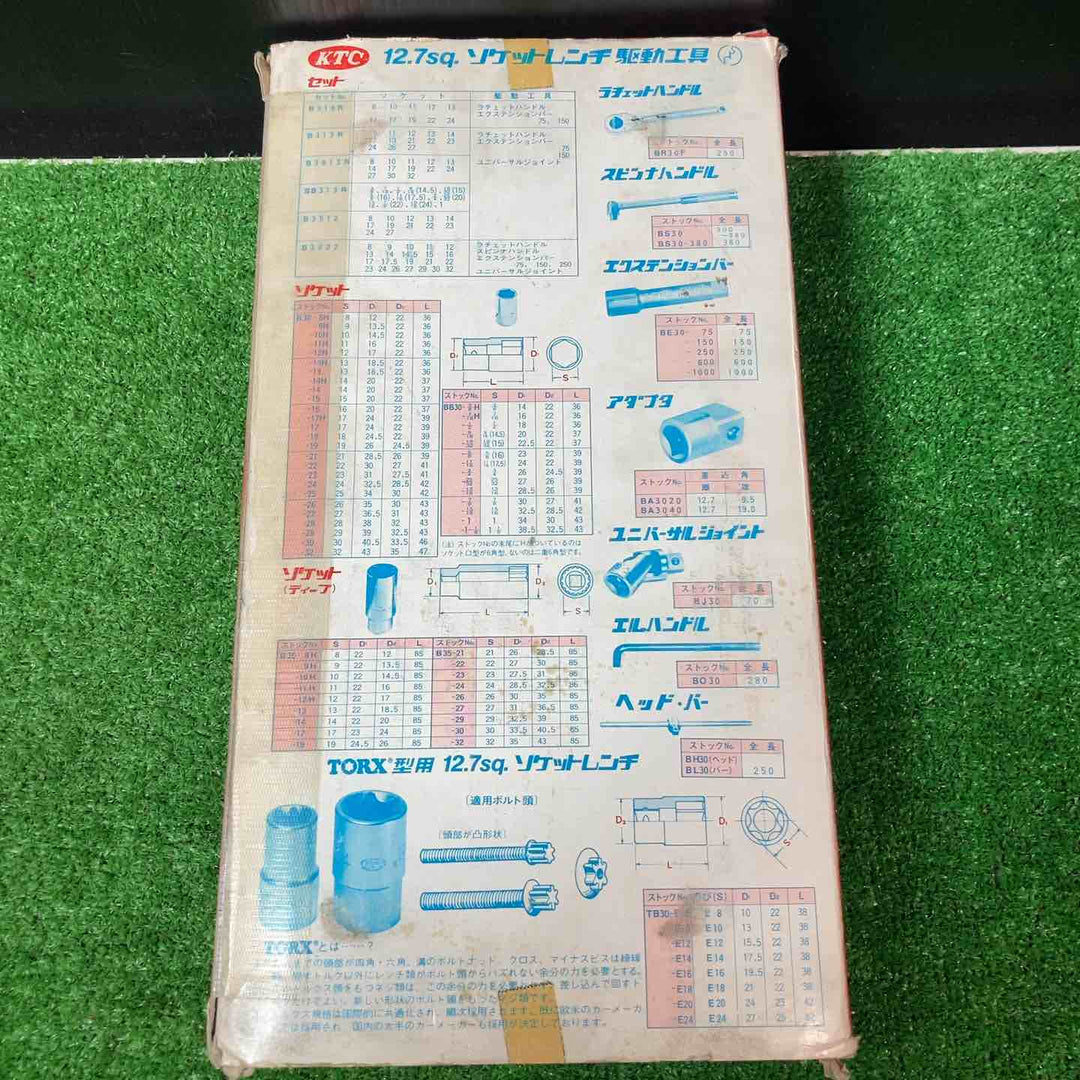 KTC 12.7sq. ソケットレンチ駆動工具
セット
セットNo. ソケット 駆動工具
ラチェットハンドル
エクステンションバー
75, 150
17 19 22 24
B313R
ラチェットハンドル
エクステンションバー
75
150
24 26 27
8 10 11 12 13
14 17 19 22 24
27 30 32
ユニバーサルジョイント
B3512
8 10 12 13 14
17 19 21 23
24 27
B3022
8 9 10 11 12
13 14 14.5 15 16
17 17.5 19 21 22
23 24 26 27 29 30 32
ラチェットハンドル
スピンナハンドル
エクステンションバー
75, 150, 250
ユニバーサルジョイント
ソケット
ストックNo. S D₁ D₂ L
B30-8H 8 12 22 36
9H 9 13.5 22 36
-10H 10 14.5 22 36
-11H 11 16 22 36
-12H 12 17 22 36
-13H 13 18.5 22 36
-13 13 18.5 22 36
-14H 14 20 22 37
-14 14 20 22 37
-15 15 20 22 37
-16 16 20 22 37
-17H 17 24 22 39
-17 17 24 22 39
-18 18 24.5 22 39
-19 19 26 24.5 39
-21 21 28.5 26 39
-22 22 30 27 41
-23 23 31 27.5 41
-24 24 32.5 28.5 42
-25 25 34 30 42
-26 26 35 30 43
-27 27 36.5 31 43
-28 28 38 32 43
-29 29 39 32.5 43
-30 30 40.5 33.5 46
-32 32 43 35 47
D₂ D₁ L S
ストックNo. S D₁ D₂ L
14 22 36
16 22 36
18 22 36
(14.5) 20 22 37
(15) 22.5 22 37
(16) 23 22 39
(17.5) 24 22 39
26 24.5 39
27 26 39
28.5 26 39
30 27 41
32.5 28.5 42
-1 1 34 30 43
38.5 32.5 43
(注) ストックNoの末尾にHがついているのは
ソケット口型が6角型、ないのは二重6角型です。
ソケット
(ディープ)
D₁ D₂ L S
ストックNo. S D₁ D₂ L
B35-8H 8 22 12 85
9H 9 22 13.5 85
-10H 10 22 14.5 85
-11H 11 22 16 85
-12H 12 22 17 85
-13 13 22 18.5 85
-14 14 22 20 85
-17 17 22 24 85
-19 19 24.5 26 85
ストックNo. S D₁ D₂ L
B35-21 21 26 28.5 85
-22 22 27 30 85
-23 23 27.5 31 85
-24 24 28.5 32.5 85
-26 26 30 35 85
-27 27 31 36.5 85
-29 29 32.5 39 85
-30 30 33.5 40.5 85
-32 32 35 43 85
ラチェットハンドル
ストックNo. 全長
BR30F 250
スピンナハンドル
ストックNo. 全長
BS30 300
BS30-380 380
エクステンションバー
ストックNo. 全長
BE30- 75 75
- 150 150
- 250 250
- 600 600
- 1000 1000
アダプタ
ストックNo. 差込角
BA3020 12.7 9.5
BA3040 12.7 19.0
ユニバーサルジョイント
ストックNo. 全長
BJ30 70
エルハンドル
ストックNo. 全長
BO30 280
ヘッド・バー
ストックNo. 全長
BH30(ヘッド)
BL30(バー) 250
TORX®型用 12.7sq. ソケットレンチ
〔適用ボルト頭〕
(頭部が凸形状)
D₂ D₁ L S
(S) D₁ D₂ L
TB30-E8 E8 10 22 38
E10 13 22 38
-E12 E12 15.5 22 38
-E14 E14 17.5 22 38
-E16 E16 19.5 22 38
-E18 E18 21 22 38
-E20 E20 24 23 42
-E24 E24 27
TORX®とは……?
までの頭部が四角・六角、溝のボルトナット、クロス、マイナスビスは締緩
トルク以外にレンチ類がボルト頭からハズれない余分の力を必要とする。
ルクス頭をもつネジ類は、この余分の力を必要 差し込んで回すト
だけでよい、新しい形状のボルト頭をもったネジ類です。
クス規格は国際的に共通化され、順次採用されます。既に欧米のカーメーカ
採用され、国内の大半のカーメーカーも採用が決定しております。